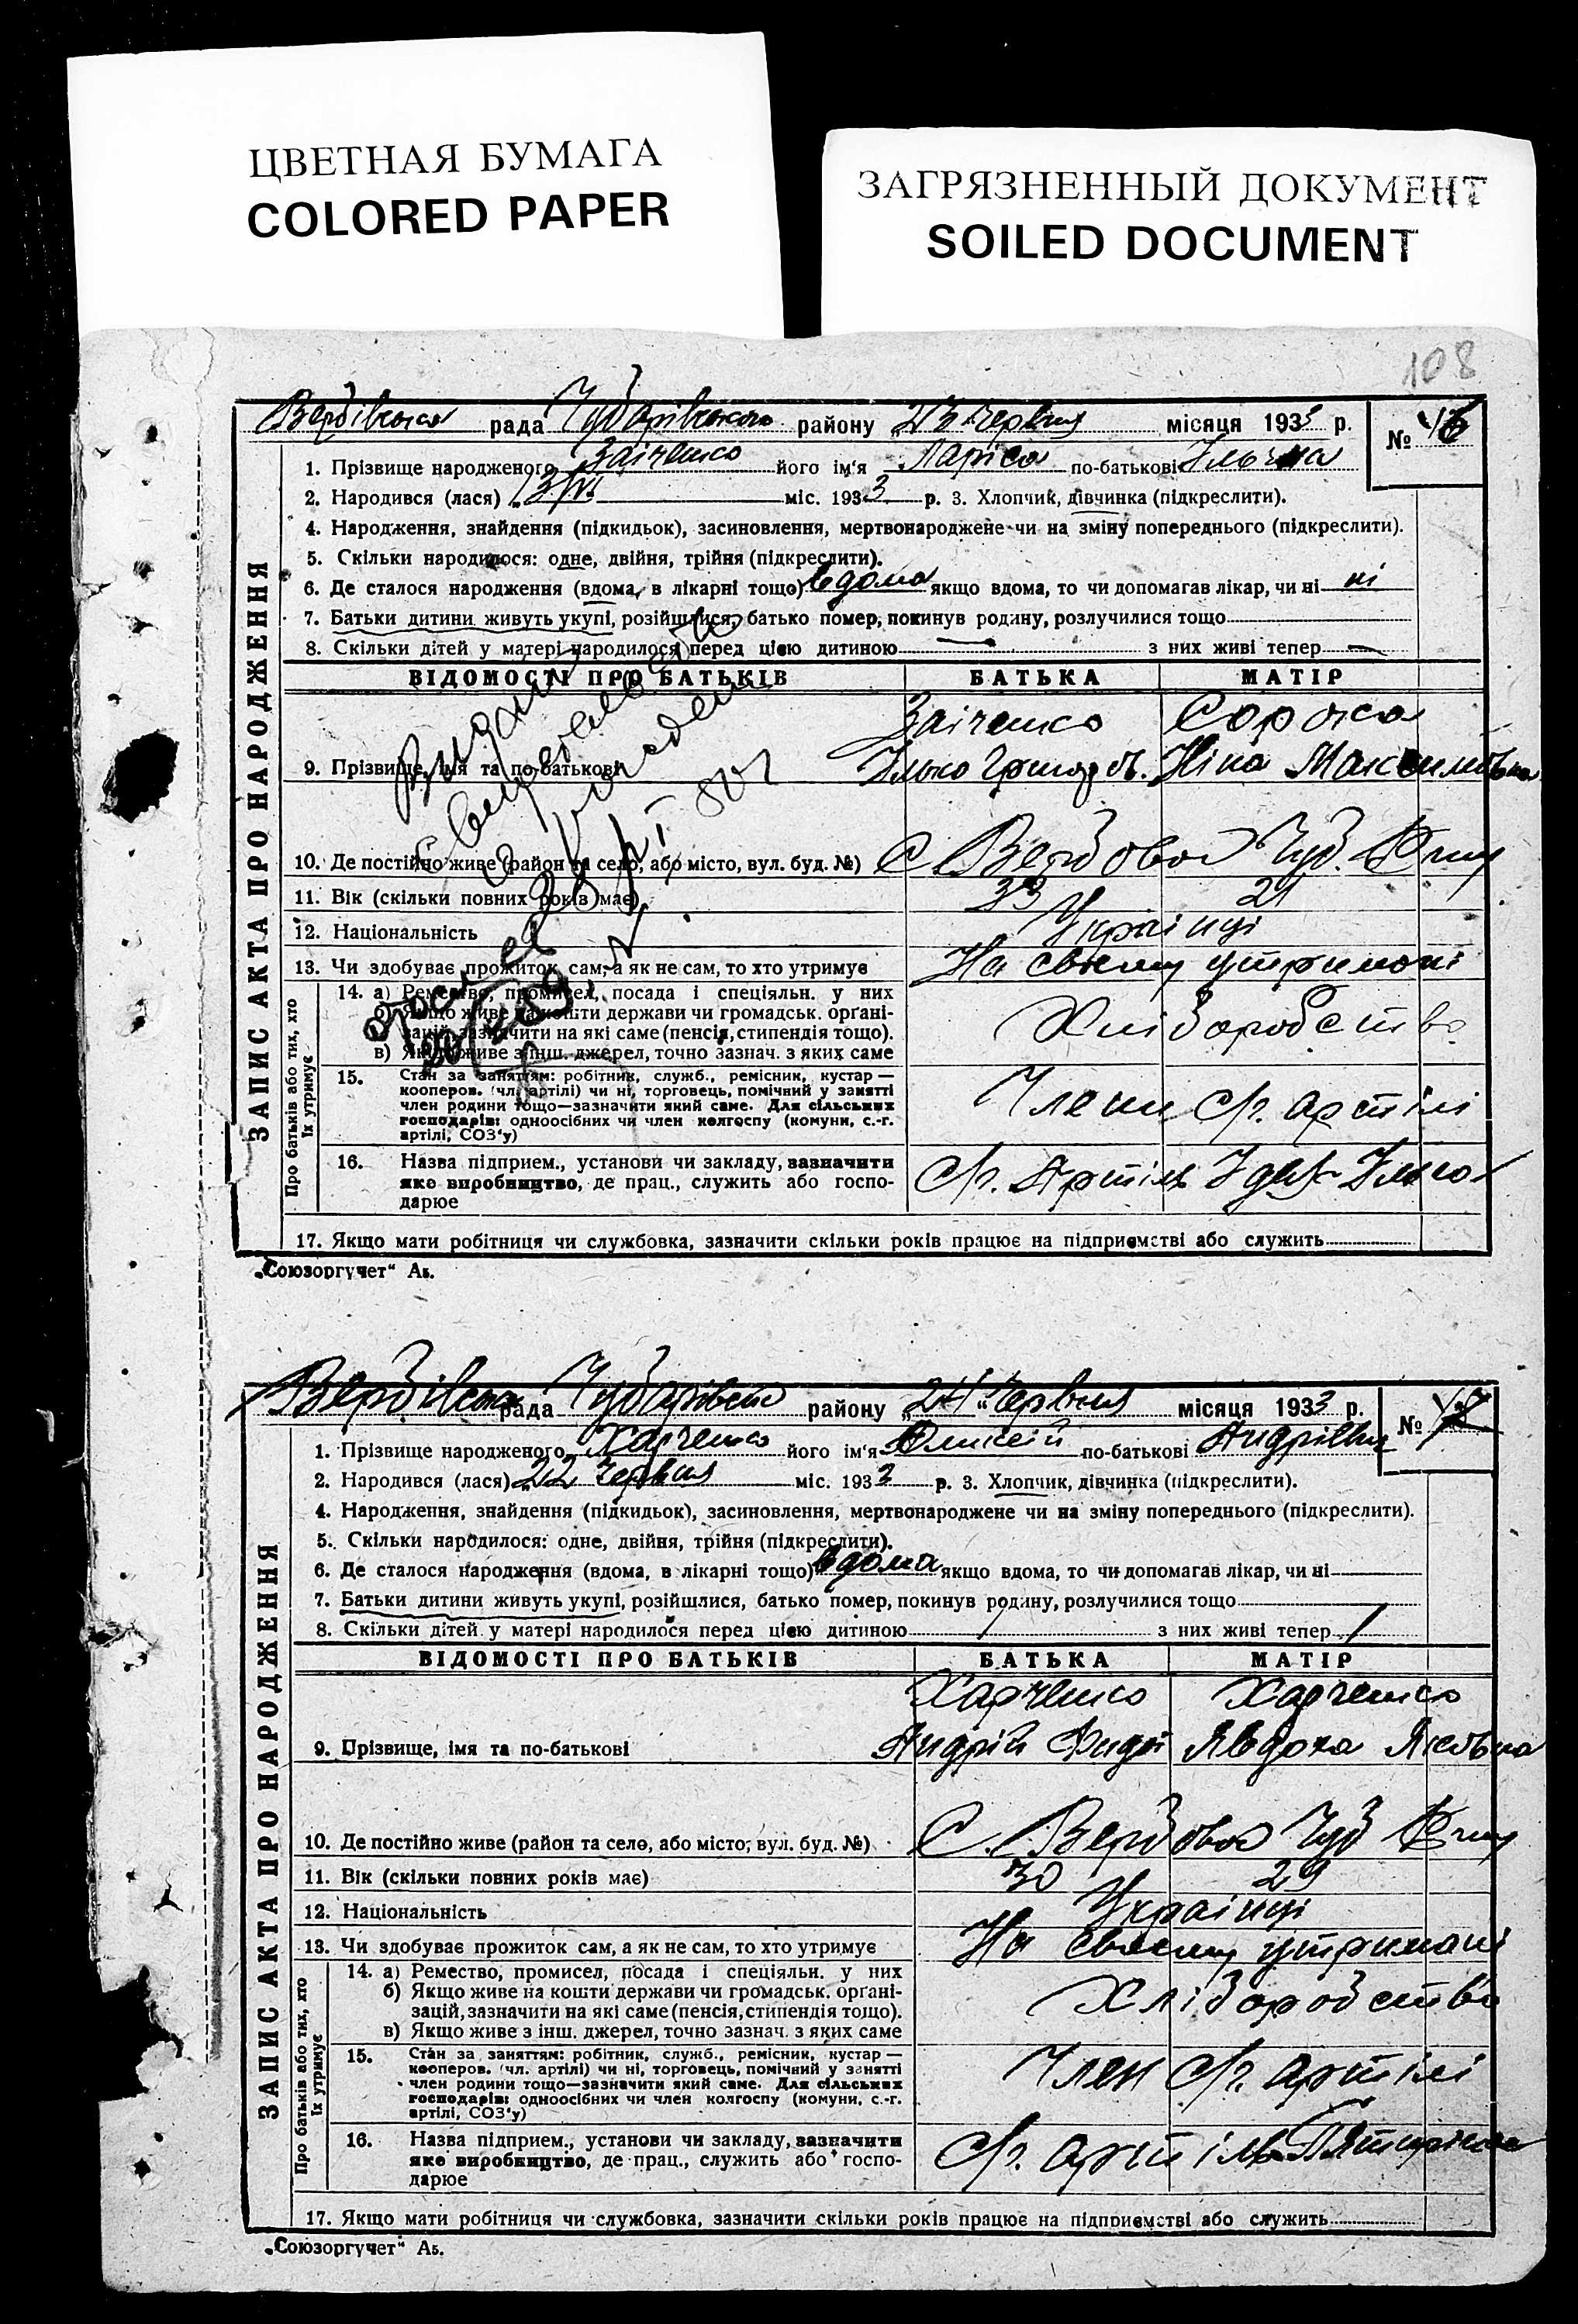 ЦВЕТНАЯ БУМАГА
COLORED PAPER
ЗАГРЯЗНЕННЫЙ ДОКУМЕНТ
SOILED DOCUMENT
108
Вербівська рада Чубарівського району „23 червня місяця 1933 р. № 16
1. Прізвище народженого Заіченко його ім'я Ларіса по-батькові
2. Народився (лася) „ міс. 1933 р. 3. Хлопчик, дівчинка (підкреслити).
4. Народження, знайдення (підкидьок), засиновлення, мертвонароджене чи на зміну попереднього (підкреслити).
5. Скільки народилося: одне, двійня, трійня (підкреслити).
6. Де сталося народження (вдома, в лікарні тощо) вдома якщо вдома, то чи допомагав лікар, чи ні ні
7. Батьки дитини живуть укупі, розійшлися, батько помер, покинув родину, розлучилися тощо
8. Скільки дітей у матері народилося перед цією дитиною — з них живі тепер —
ЗАПИС АКТА ПРО НАРОДЖЕННЯ
ВІДОМОСТІ ПРО БАТЬКІВ БАТЬКА МАТІР
Заіченко Сорока
9. Прізвище, імя та по-батькові Ілько Григоров. Ніна Максимовна
10. Де постійно живе (район та село, або місто, вул. буд. №) С. Вербова Чуб.
11. Вік (скільки повних років має) 33 21
12. Національність Українці
13. Чи здобуває прожиток сам, а як не сам, то хто утримує На своєму утримані
Про батьків або тих, хто їх утримує
14. а) Ремество, промисел, посада і спеціяльн. у них
б) Якщо живе на кошти держави чи громадськ. органі-
зацій, зазначити на які саме (пенсія, стипендія тощо). Хліборобство
в) Якщо живе з інш. джерел, точно зазнач. з яких саме
15. Стан за заняттям: робітник, служб., ремісник, кустар —
кооперов. (чл. артілі) чи ні, торговець, помічний у занятті
член родини тощо—зазначити який саме. Для сільських Члени с/г. артілі
господарів: одноосібних чи член колгоспу (комуни, с.-г.
артілі, СОЗ'у)
16. Назва підприєм., установи чи закладу, зазначити
яке виробництво, де прац., служить або госпо- с/г. Артіль
дарює
17. Якщо мати робітниця чи службовка, зазначити скільки років працює на підприємстві або служить
„Союзоргучет" Аб.
Вербівська рада Чубарівськ району „24" червня місяця 1933 р. № 17
1. Прізвище народженого Харченко його ім'я Оликсій по-батькові Андрієвич
2. Народився (лася) „22 червня міс. 1933 р. 3. Хлопчик, дівчинка (підкреслити).
4. Народження, знайдення (підкидьок), засиновлення, мертвонароджене чи на зміну попереднього (підкреслити).
5. Скільки народилося: одне, двійня, трійня (підкреслити).
6. Де сталося народження (вдома, в лікарні тощо) вдома якщо вдома, то чи допомагав лікар, чи ні
7. Батьки дитини живуть укупі, розійшлися, батько помер, покинув родину, розлучилися тощо
8. Скільки дітей у матері народилося перед цією дитиною 1 з них живі тепер 1
ЗАПИС АКТА ПРО НАРОДЖЕННЯ
ВІДОМОСТІ ПРО БАТЬКІВ БАТЬКА МАТІР
Харченко Харченко
9. Прізвище, імя та по-батькові Андрій Явдоха Яковна
10. Де постійно живе (район та село, або місто, вул. буд. №) С. Вербова Чуб
11. Вік (скільки повних років має) 30 29
12. Національність Українці
13. Чи здобуває прожиток сам, а як не сам, то хто утримує На своєму утримані
Про батьків або тих, хто їх утримує
14. а) Ремество, промисел, посада і спеціяльн. у них
б) Якщо живе на кошти держави чи громадськ. органі-
зацій, зазначити на які саме (пенсія, стипендія тощо). Хліборобство
в) Якщо живе з інш. джерел, точно зазнач. з яких саме
15. Стан за заняттям: робітник, служб., ремісник, кустар —
кооперов. (чл. артілі) чи ні, торговець, помічний у занятті
член родини тощо—зазначити який саме. Для сільських Член с/г. артілі
господарів: одноосібних чи член колгоспу (комуни, с.-г.
артілі, СОЗ'у)
16. Назва підприєм., установи чи закладу, зазначити
яке виробництво, де прац., служить або госпо- с/г. артіль
дарює
17. Якщо мати робітниця чи службовка, зазначити скільки років працює на підприємстві або служить
„Союзоргучет" Аб.